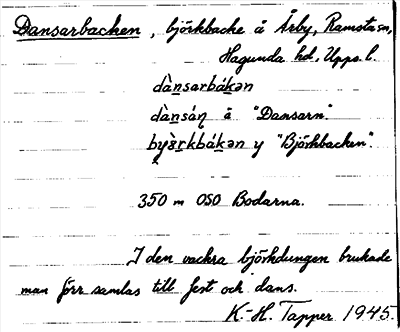 Dansarbacken, björkbacke å Årby, Ramsta sn,
Hagunda hd, Upps. l.
dàn̲sarbák̲ən
dàn̲sáņ å "Dansarn".
byæ̀r̲kbák̲ən y "Björkbacken".
350 m OSO Bodarna.
I den vackra björkdungen brukade
man förr samlas till fest och dans.
K.-H. Tapper 1945.